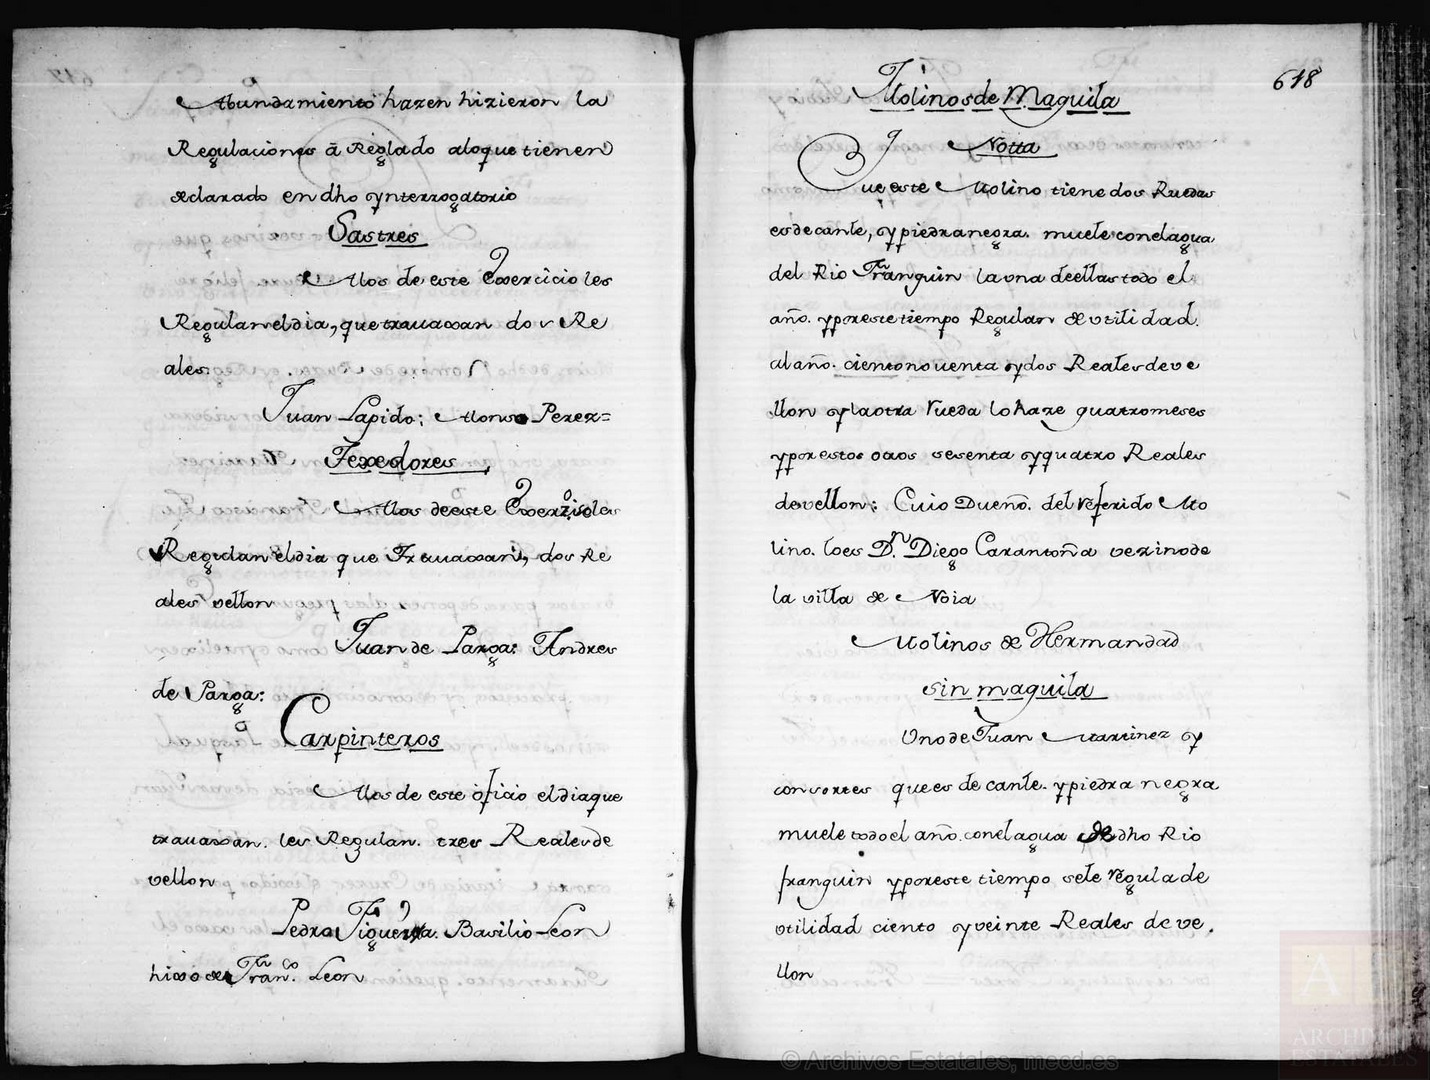 Abundamiento hazen hizieron la
Regulaciones á Reglado aloque tienen
declarado en dho ynterrogatorio
Sastres
Allos de este Exercicio les
Regulan eldia, que travaxan dos Re
ales
Juan Lapido; Alonso Perez=
Texedores
Allos deeste Exerzi.º les
Regulan eldia que Travaxan, dos Re
ales vellon
Juan de Parga: Andres
de Parga:
Carpinteros
Alos de este oficio eldia que
travaxan. les Regulan. tres Reales de
vellon
Pedro Figueira. Basilio Leon
hixo de Fran.co Leon
618
Molinos de Maquila
Notta
Que este Molino tiene dos Ruedas
es de cante, y piedra negra. muele conelagua
del Rio Franquin la una de ellas todo el
año. y poreste tiempo Regulan de utilidad.
al año. ciento noventa y dos Reales de ve
llon y la otra rueda lo haze quatro meses
y por estos otros sesenta y quatro Reales
de vellon; Cuio Dueño. del referido Mo
lino. loes D.n Diego Carantoña vezino de
la villa de Noia
Molinos de Hermandad
sin maquila
Uno de Juan Martinez y
consortes que es de cante. y piedra negra
muele todo el año. conel agua de dho Rio
franquin y poreste tiempo sele regula de
utilidad ciento y veinte Reales de ve.
llon
© Archivos Estatales, mecd.es
A
ARCHIVOS
ESTATALES